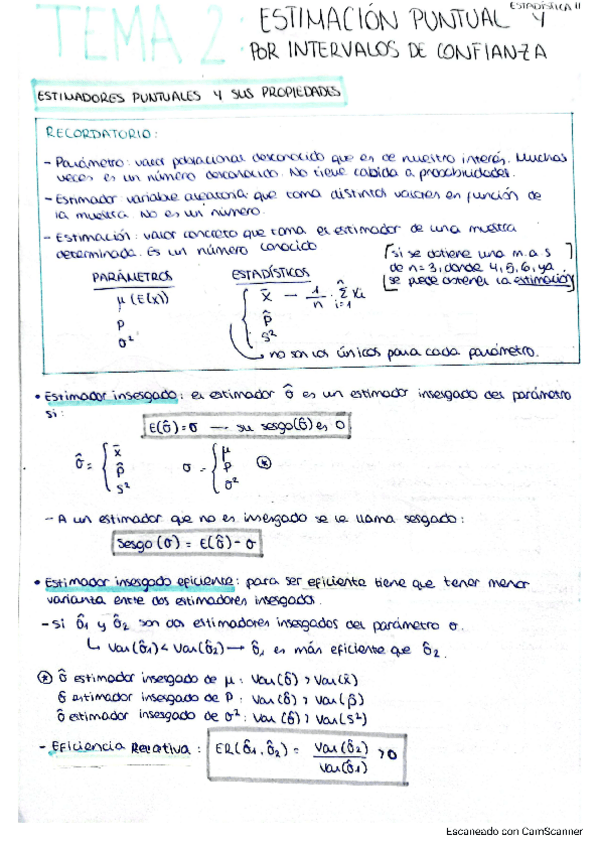 ESTADÍSTICA II
TEMA 2: ESTIMACIÓN PUNTUAL Y
POR INTERVALOS DE CONFIANZA
ESTIMADORES PUNTUALES Y SUS PROPIEDADES
RECORDATORIO:
- Parámetro: valor poblacional desconocido que es de nuestro interés. Muchas
veces es un número desconocido. No tiene cabida a probabilidades.
- Estimador: variable aleatoria que toma distintos valores en función de
la muestra. No es un número.
- Estimación: valor concreto que toma el estimador de una muestra
determinada. Es un número conocido
[si se obtiene una m.a.s
de n=3, donde 4,5,6, ya
se puede obtener la estimación]
PARÁMETROS ESTADÍSTICOS
μ (E(x)) x̄ — 1/n · Σ xi
n
i=1
P p̂
σ² s²
no son los únicos para cada parámetro.
• Estimador insesgado: el estimador σ̂ es un estimador insesgado del parámetro
si:
E(σ̂)=σ — su sesgo(σ̂) es 0
σ̂ = { x̄ p̂ s² σ = { μ P σ² ⊛
- A un estimador que no es insesgado se le llama sesgado:
Sesgo (σ) = E(σ̂) - σ
• Estimador insesgado eficiente: para ser eficiente tiene que tener menor
varianza entre dos estimadores insesgados.
- Si σ̂1 y σ̂2 son dos estimadores insesgados del parámetro σ.
↳ Var(σ̂1) < Var(σ̂2) → σ̂1 es más eficiente que σ̂2.
⊛ σ̂ estimador insesgado de μ: Var(σ̂) > Var(x̄)
σ̂ estimador insesgado de P: Var(σ̂) > Var(p̂)
σ̂ estimador insesgado de σ²: Var(σ̂) > Var(s²)
- Eficiencia Relativa: ER(σ̂1, σ̂2) = Var(σ̂2) / Var(σ̂1) > 0
Escaneado con CamScanner